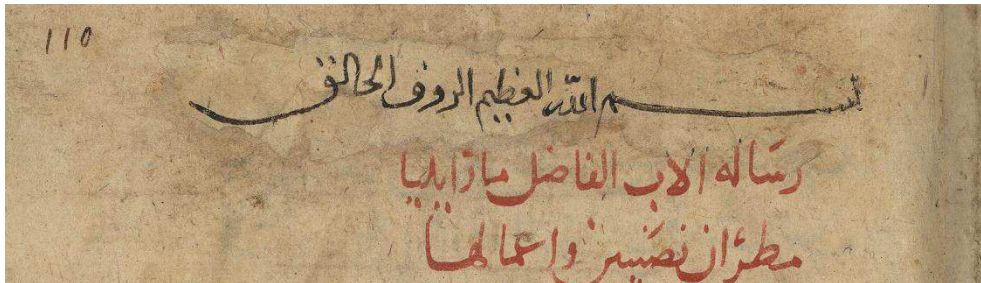 ١١٥
بسم الله العظيم الروف الخالق
رساله الاب الفاضل مار ايليا
مطران نصيبين واعمالها